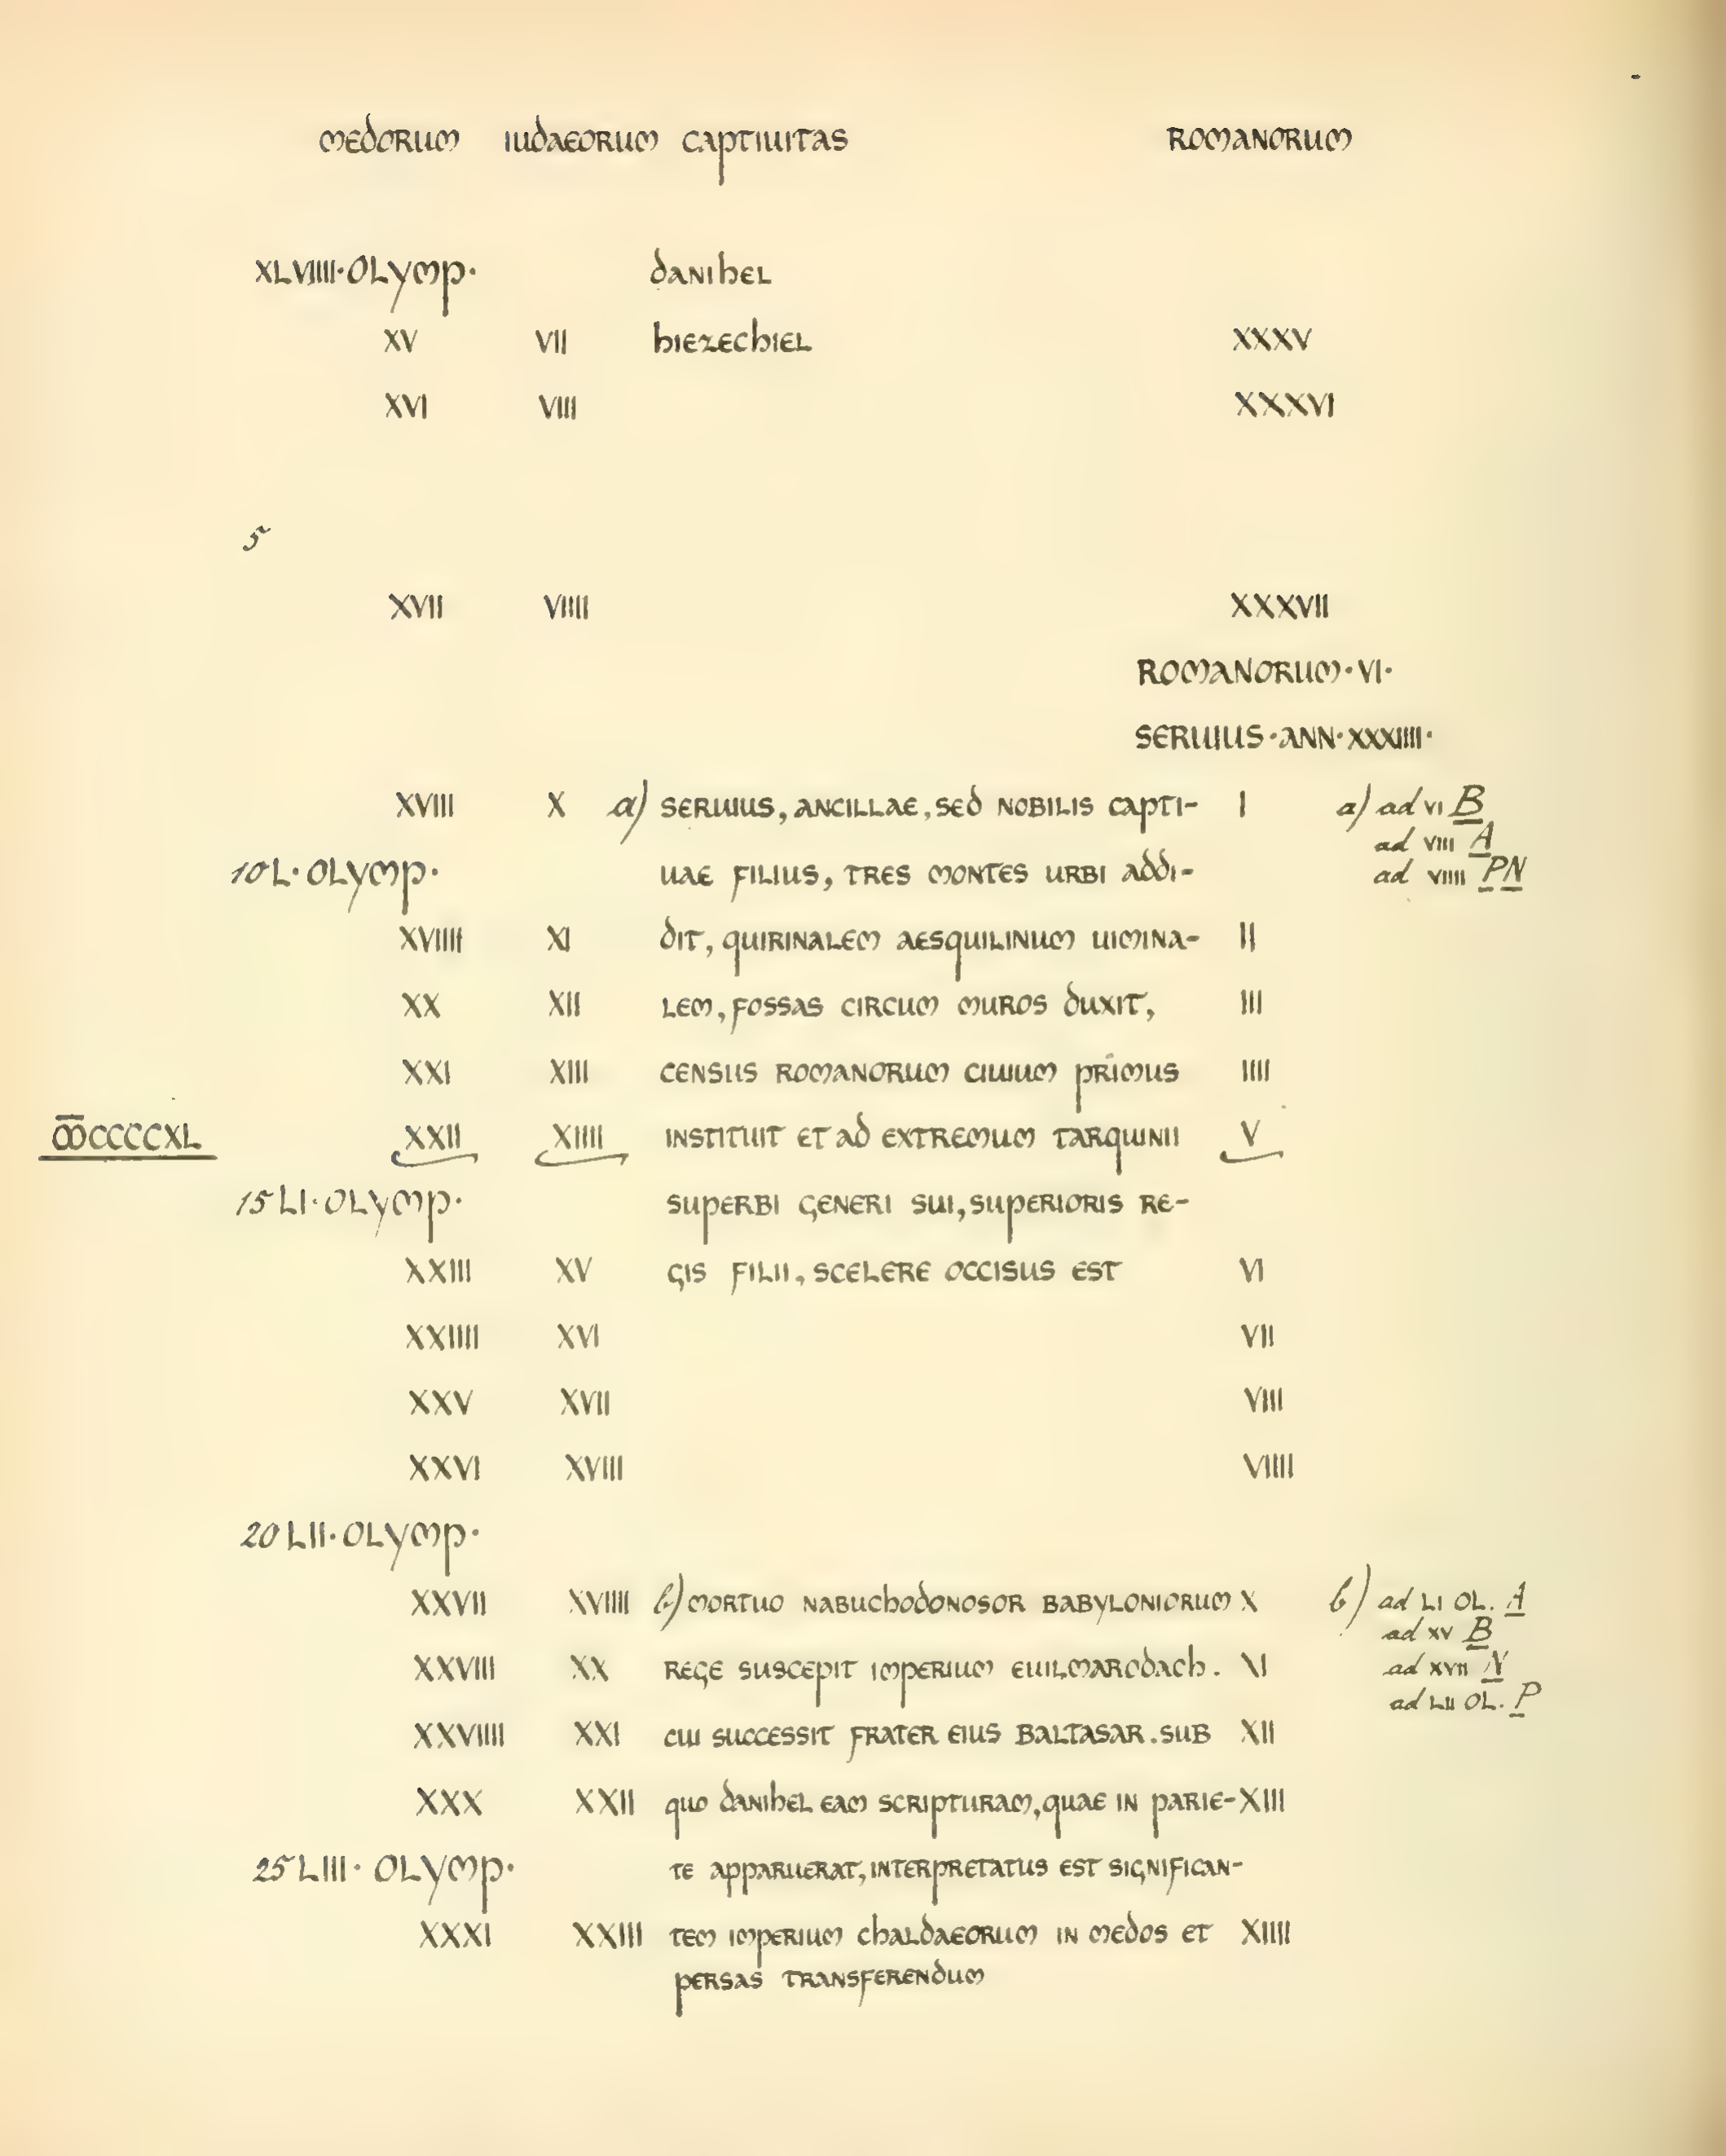 MEDORUM IUDAEORUM CAPTIUITAS ROMANORUM
XLVIIII·OLYMP· DANIHEL
XV VII HIEZECHIEL XXXV
XVI VIII XXXVI
5
XVII VIIII XXXVII
ROMANORUM·VI·
SERUIUS·ANN·XXXIIII·
XVIII X a) SERUIUS, ANCILLAE, SED NOBILIS CAPTI- I a) ad VI B
ad VIII A
10 L·OLYMP· UAE FILIUS, TRES MONTES URBI ADDI- ad VIIII PN
XVIIII XI DIT, QUIRINALEM AESQUILINUM UIMINA- II
XX XII LEM, FOSSAS CIRCUM MUROS DUXIT, III
XXI XIII CENSUS ROMANORUM CIUIUM PRIMUS IIII
ꝏ̅CCCCXL XXII XIIII INSTITUIT ET AD EXTREMUM TARQUINII V
15 LI·OLYMP· SUPERBI GENERI SUI, SUPERIORIS RE-
XXIII XV GIS FILII, SCELERE OCCISUS EST VI
XXIIII XVI VII
XXV XVII VIII
XXVI XVIII VIIII
20 LII·OLYMP·
XXVII XVIIII b) MORTUO NABUCHODONOSOR BABYLONIORUM X b) ad LI OL. A
ad XV B
XXVIII XX REGE SUSCEPIT IMPERIUM EUILMARODACH. XI ad XVII N
ad LII OL. P
XXVIIII XXI CUI SUCCESSIT FRATER EIUS BALTASAR. SUB XII
XXX XXII QUO DANIHEL EAM SCRIPTURAM, QUAE IN PARIE- XIII
25 LIII· OLYMP· TE APPARUERAT, INTERPRETATUS EST SIGNIFICAN-
XXXI XXIII TEM IMPERIUM CHALDAEORUM IN MEDOS ET XIIII
PERSAS TRANSFERENDUM